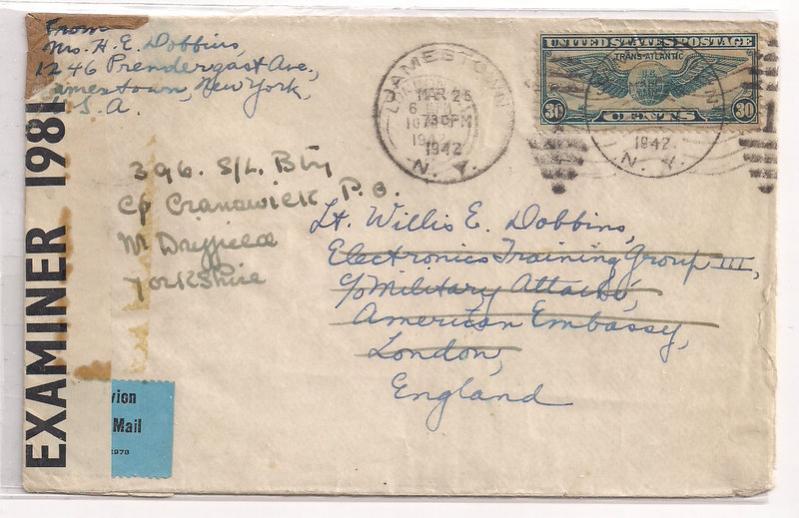 From
Mrs. H. E. Dobbins,
1246 Prendergast Ave.,
Jamestown, New York,
U.S.A.
JAMESTOWN
MAR 25
7 30 PM
1942
N. Y.
UNITED STATES POSTAGE
TRANS-ATLANTIC
30 CENTS 30
1942
N. Y.
EXAMINER 1981
396. S/L. Bty
C/o Cranswick P.O.
Nr Dryfield
Yorkshire
Lt. Willis E. Dobbins,
Electronics Training Group III,
c/o Military Attaché,
American Embassy,
London,
England
vion
Mail